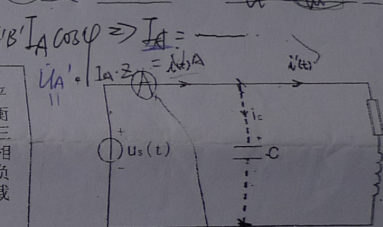 'B' I_A cosφ ⇒ I_A =
U_A' = I_A · Z
= i(t)A
i'(t)
A
i_c
+
+
u_s(t)
C
-
平
衡
三
相
负
载